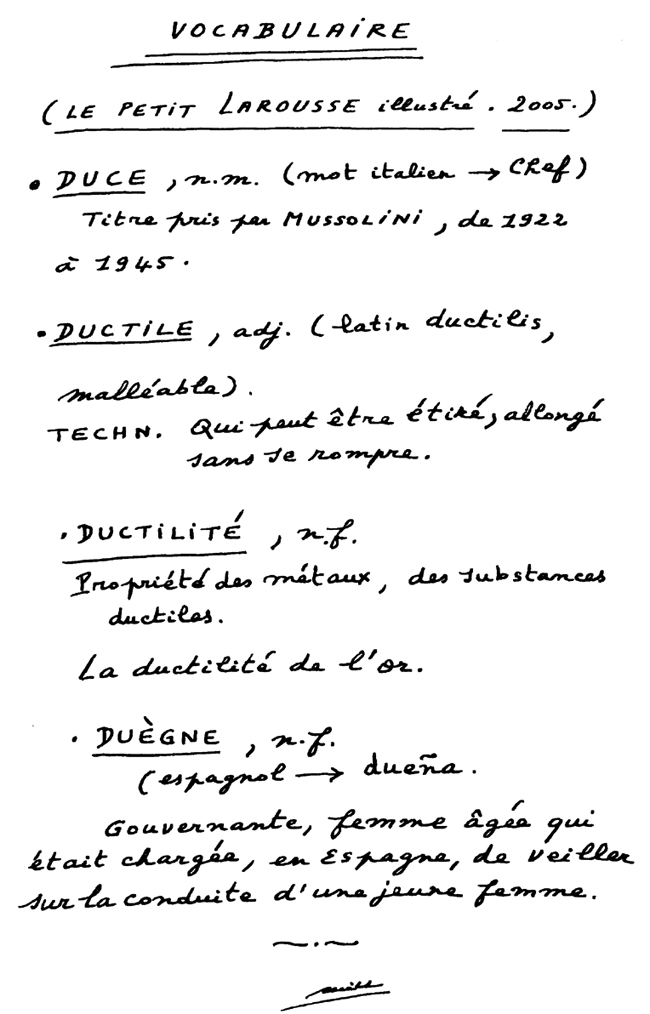 VOCABULAIRE
(LE PETIT LAROUSSE illustré. 2005.)
• DUCE, n.m. (mot italien → Chef)
Titre pris par MUSSOLINI, de 1922
à 1945.
• DUCTILE, adj. (latin ductilis,
malléable).
TECHN. Qui peut être étiré, allongé
sans se rompre.
• DUCTILITÉ, n.f.
Propriété des métaux, des substances
ductiles.
La ductilité de l'or.
• DUÈGNE, n.f.
(espagnol → dueña.
Gouvernante, femme âgée qui
était chargée, en Espagne, de veiller
sur la conduite d'une jeune femme.